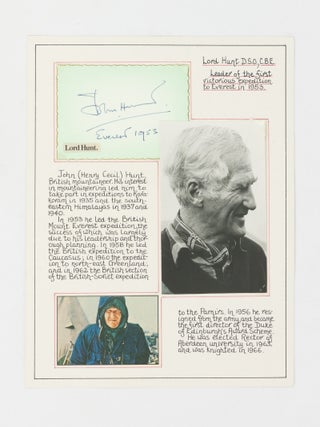 Lord Hunt D.S.O, C.B.E.
Leader of the first
victorious expedition
to Everest in 1953.
John Hunt
Everest 1953
Lord Hunt.
John (Henry Cecil) Hunt,
British mountaineer. His interest
in mountaineering led him to
take part in expeditions to Kara-
koram in 1935 and the south-
eastern Himalayas in 1937 and
1940.
In 1953 he led the British
Mount Everest expedition, the
success of which was largely
due to his leadership and thor-
ough planning. In 1958 he led
the British expedition to the
Caucasus, in 1960 the expedit-
ion to north-east Greenland,
and in 1962 the British section
of the British-Soviet expedition
to the Pamirs. In 1956 he res-
igned from the army and became
the first director of the Duke
of Edinburgh's Award Scheme.
He was elected Rector of
Aberdeen university in 1963
and was knighted in 1966.